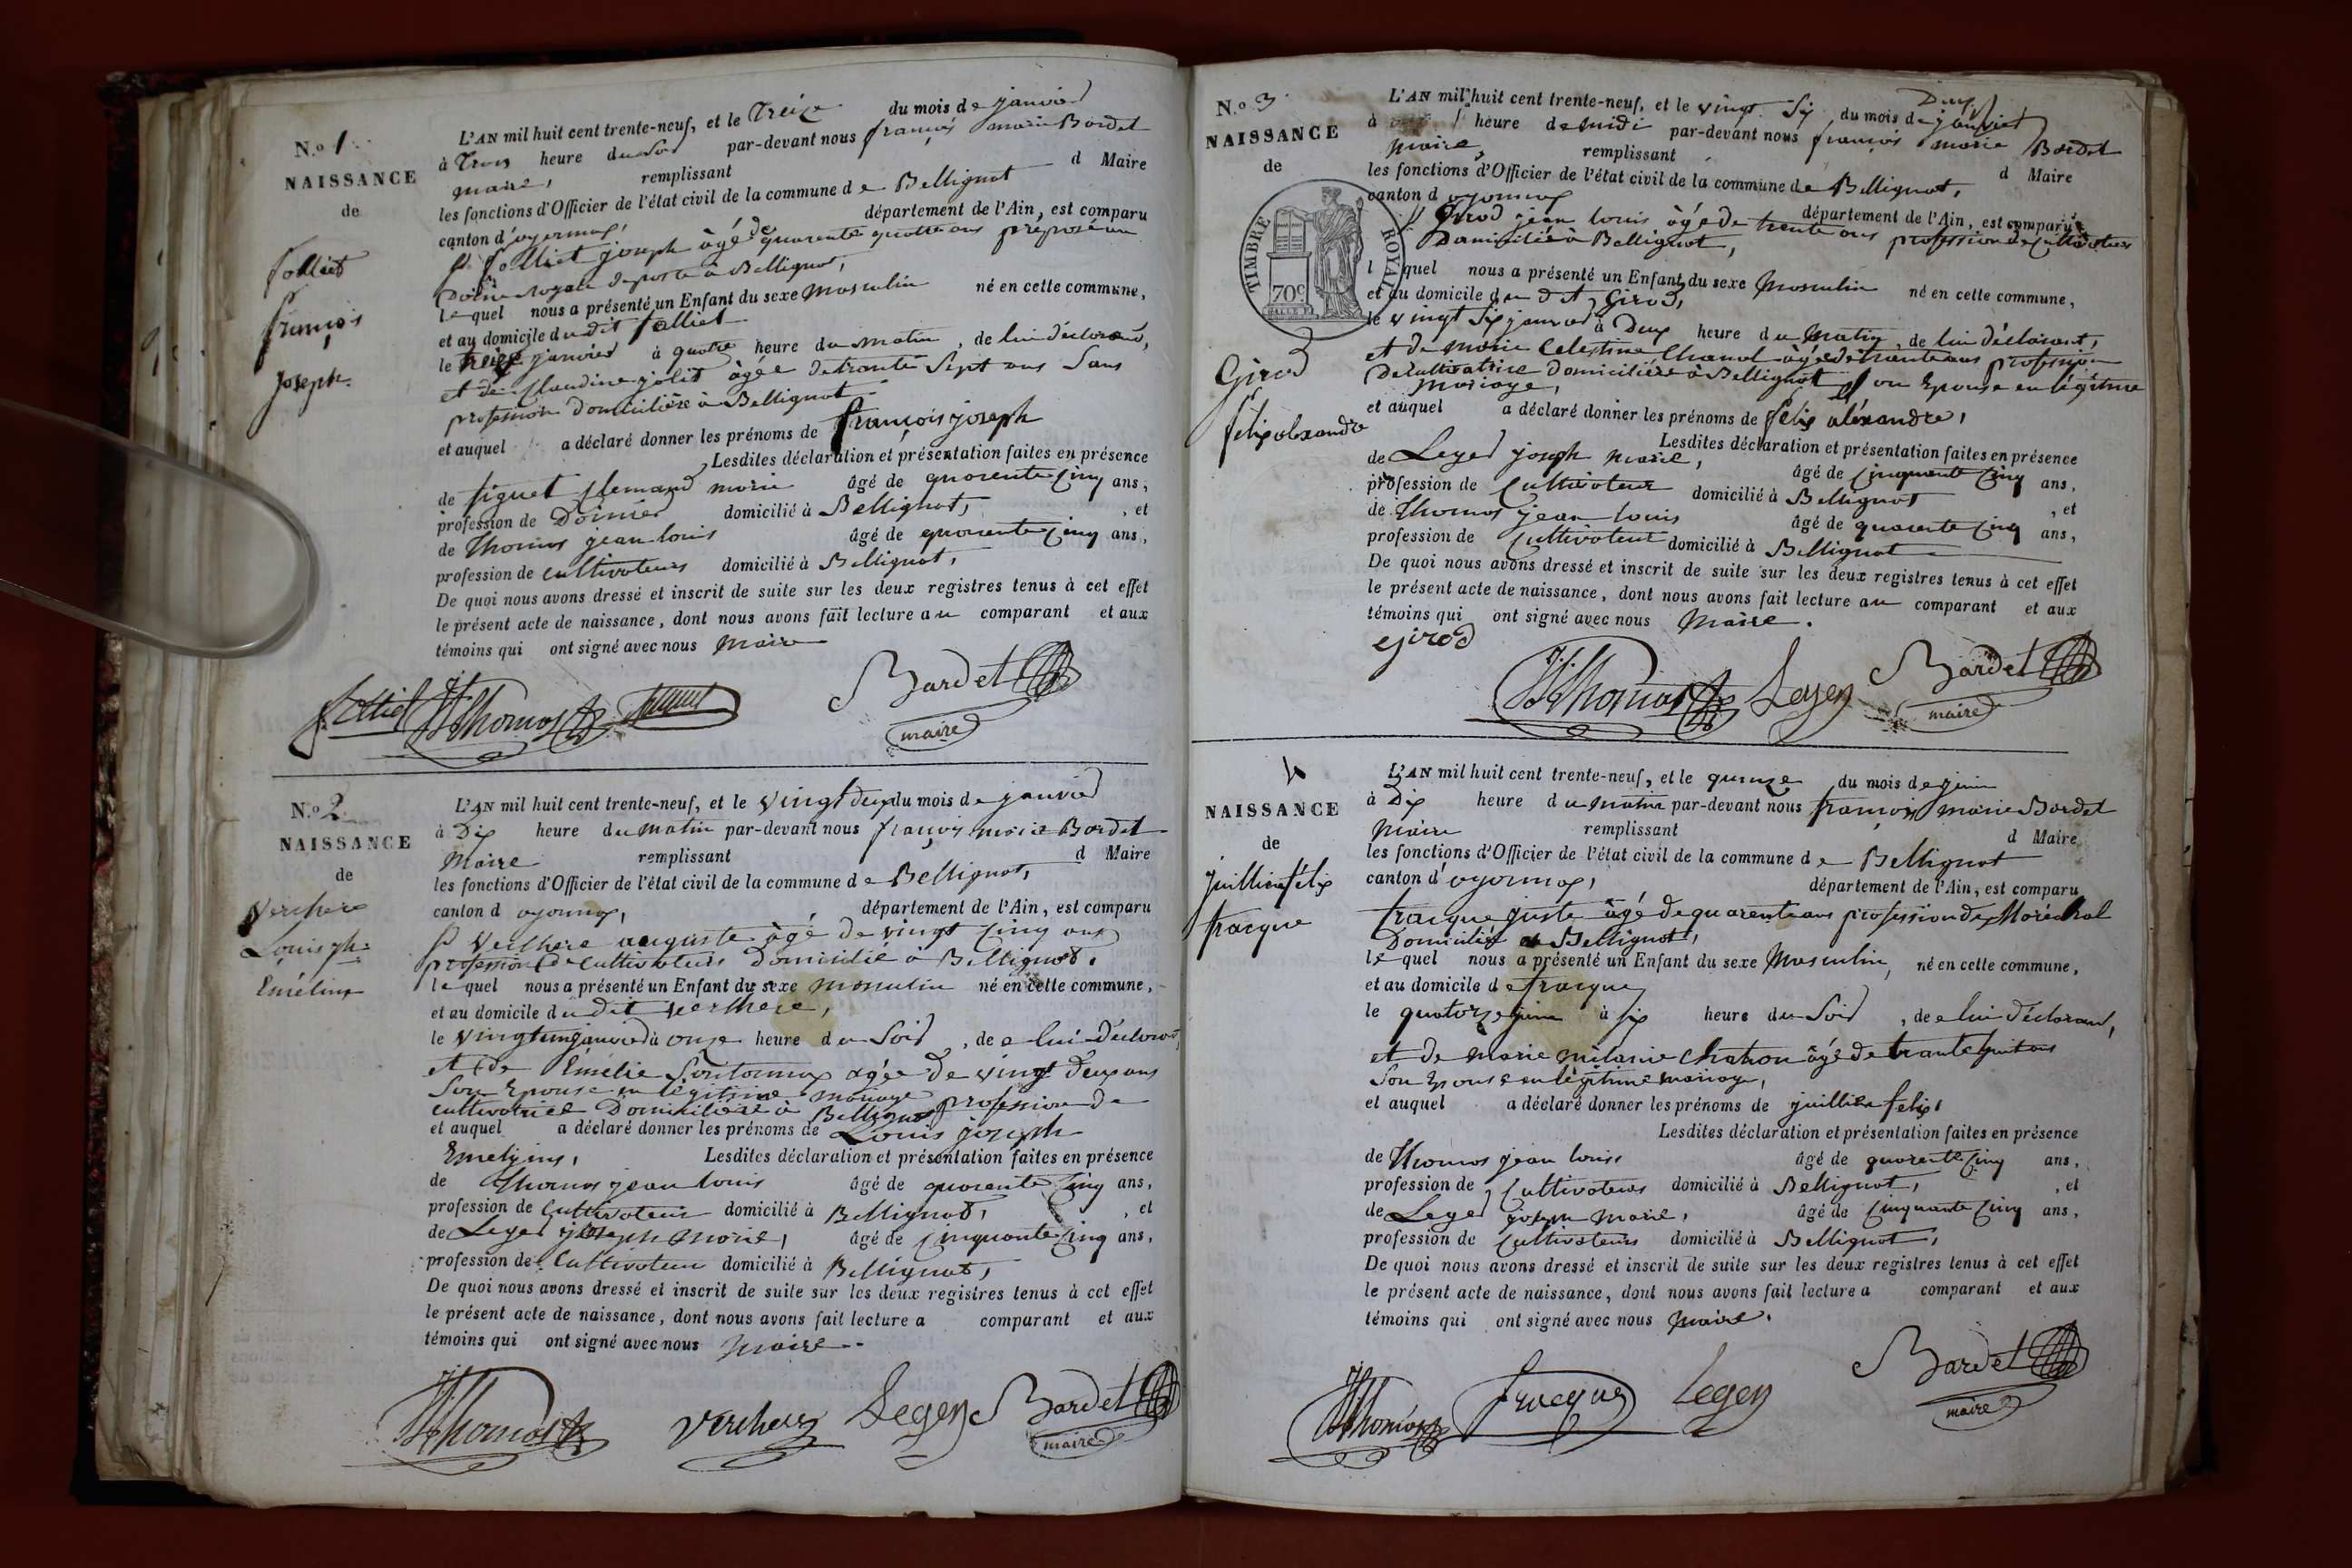 N.o 1
NAISSANCE
de
folliet
françois
joseph
L'AN mil huit cent trente-neuf, et le Treize du mois de janvier
à Trois heure du soir par-devant nous françois marie Bardet
maire, remplissant d Maire
les fonctions d'Officier de l'état civil de la commune de Bellignat
canton d'oyonnax, département de l'Ain, est comparu
folliet joseph âgé de quarente quatre ans préposé au
Doine royale de poste à Bellignat,
lequel nous a présenté un Enfant du sexe Masculin né en cette commune,
et au domicile du dit folliet
le treize janvier à quatre heure du matin, de lui déclarant,
et de Claudine jolit âgée de trante sept ans Sans
profession Domicilière à Bellignat
et auquel a déclaré donner les prénoms de françois joseph
Lesdites déclaration et présentation faites en présence
de figuet Clemand marie âgé de quarente cinq ans,
profession de Doinier domicilié à Bellignat, , et
de Thomas jean louis âgé de quarente cinq ans,
profession de cultivateurs domicilié à Bellignat,
De quoi nous avons dressé et inscrit de suite sur les deux registres tenus à cet effet
le présent acte de naissance, dont nous avons fait lecture au comparant et aux
témoins qui ont signé avec nous Maire
folliet JLThomas figuet Bardet
maire
N.o 2
NAISSANCE
de
Verchere
Louis jph
Emélin
L'AN mil huit cent trente-neuf, et le vingt deux du mois de janvier
à Dix heure du matin par-devant nous françois marie Bardet
Maire remplissant d Maire
les fonctions d'Officier de l'état civil de la commune de Bellignat,
canton d oyonnax, département de l'Ain, est comparu
Verchere auguste âgé de vingt cinq ans
profession de cultivateurs domicilié à Bellignat.
lequel nous a présenté un Enfant du sexe masculin né en cette commune,
et au domicile du dit verchere,
le vingt un janvier à onze heure du Soir, de lui déclarant
et de Emélie Sontonnax agée de vingt deux ans
Son Epouse en légitime mariage profession de
cultivatrice Domicilière à Bellignat
et auquel a déclaré donner les prénoms de Louis joseph
Emelyins, Lesdites déclaration et présentation faites en présence
de Thomas jean louis âgé de quarente cinq ans,
profession de Cultivateur domicilié à Bellignat, , et
de Leger joseph Marie, âgé de cinquante cinq ans,
profession de Cultivateur domicilié à Bellignat,
De quoi nous avons dressé et inscrit de suite sur les deux registres tenus à cet effet
le présent acte de naissance, dont nous avons fait lecture a comparant et aux
témoins qui ont signé avec nous Maire.
JLThomas Verchere Leger Bardet
maire
N.o 3
NAISSANCE
de
TIMBRE ROYAL
70c
Girod
félix alexandre
L'AN mil huit cent trente-neuf, et le vingt Six du mois de janvier
à Deux heure de midi par-devant nous françois marie Bardet
maire, remplissant d Maire
les fonctions d'Officier de l'état civil de la commune de Bellignat,
canton d oyonnax département de l'Ain, est comparu
Girod jean louis âgé de trente ans profession de cultivateur
Domicilié à Bellignat,
l quel nous a présenté un Enfant du sexe Masculin né en cette commune,
et au domicile du dit Girod,
le vingt Six janvier à Deux heure du Matin, de lui déclarant,
et de marie Celestine Chanal âgé de trante ans profession
De cultivatrice domicilière à Bellignat Son Epouse en légitime
Mariage,
et auquel a déclaré donner les prénoms de félix aléxandre,
Lesdites déclaration et présentation faites en présence
de Leger joseph marie, âgé de cinquante cinq ans,
profession de Cultivateur domicilié à Bellignat , et
de Thomas jean louis âgé de quarente cinq ans,
profession de Cultivateur domicilié à Bellignat
De quoi nous avons dressé et inscrit de suite sur les deux registres tenus à cet effet
le présent acte de naissance, dont nous avons fait lecture au comparant et aux
témoins qui ont signé avec nous Maire.
girod
JLThomas Leger Bardet
maire
4
NAISSANCE
de
juillien félix
fracque
L'AN mil huit cent trente-neuf, et le quinze du mois de juin
à Dix heure du matin par-devant nous françois marie Bardet
Maire remplissant d Maire
les fonctions d'Officier de l'état civil de la commune de Bellignat
canton d'oyonnax, département de l'Ain, est comparu
fracque juste âgé de quarente ans profession de Maréchal
Domicilié à Bellignat,
lequel nous a présenté un Enfant du sexe Masculin, né en cette commune,
et au domicile de fracque
le quatorze juin à six heure du Soir, de lui déclarant,
et de Marie mélanie Chahon âgé de trante huit ans
Son Epouse en légitime mariage,
et auquel a déclaré donner les prénoms de juillien felix,
Lesdites déclaration et présentation faites en présence
de Thomas jean louis âgé de quarente cinq ans,
profession de Cultivateurs domicilié à Bellignat, , et
de Leger joseph Marie, âgé de cinquante cinq ans,
profession de Cultivateurs domicilié à Bellignat,
De quoi nous avons dressé et inscrit de suite sur les deux registres tenus à cet effet
le présent acte de naissance, dont nous avons fait lecture a comparant et aux
témoins qui ont signé avec nous Maire.
JLThomas fracque Leger Bardet
maire